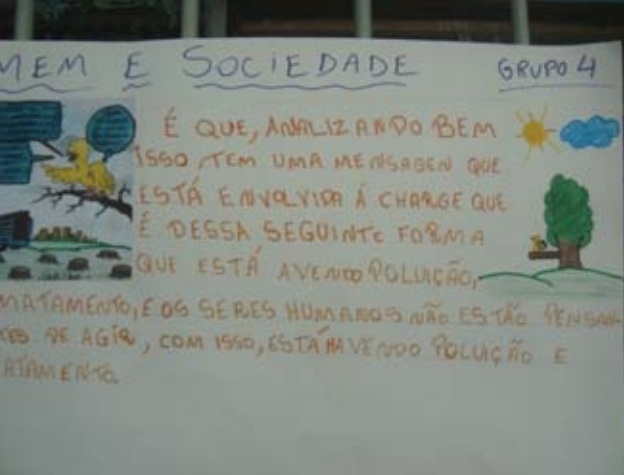 MEM E SOCIEDADE GRUPO 4
É QUE, ANALIZANDO BEM
ISSO, TEM UMA MENSAGEN QUE
ESTÁ ENVOLVIDA Á CHARGE QUE
É DESSA SEGUINTE FORMA
QUE ESTÁ AVENDO POLUIÇÃO,
MATAMENTO, E OS SERES HUMANOS NÃO ESTÃO PENSAN-
TES DE AGIR, COM ISSO, ESTÁ HAVENDO POLUIÇÃO E
ATAMENTO.